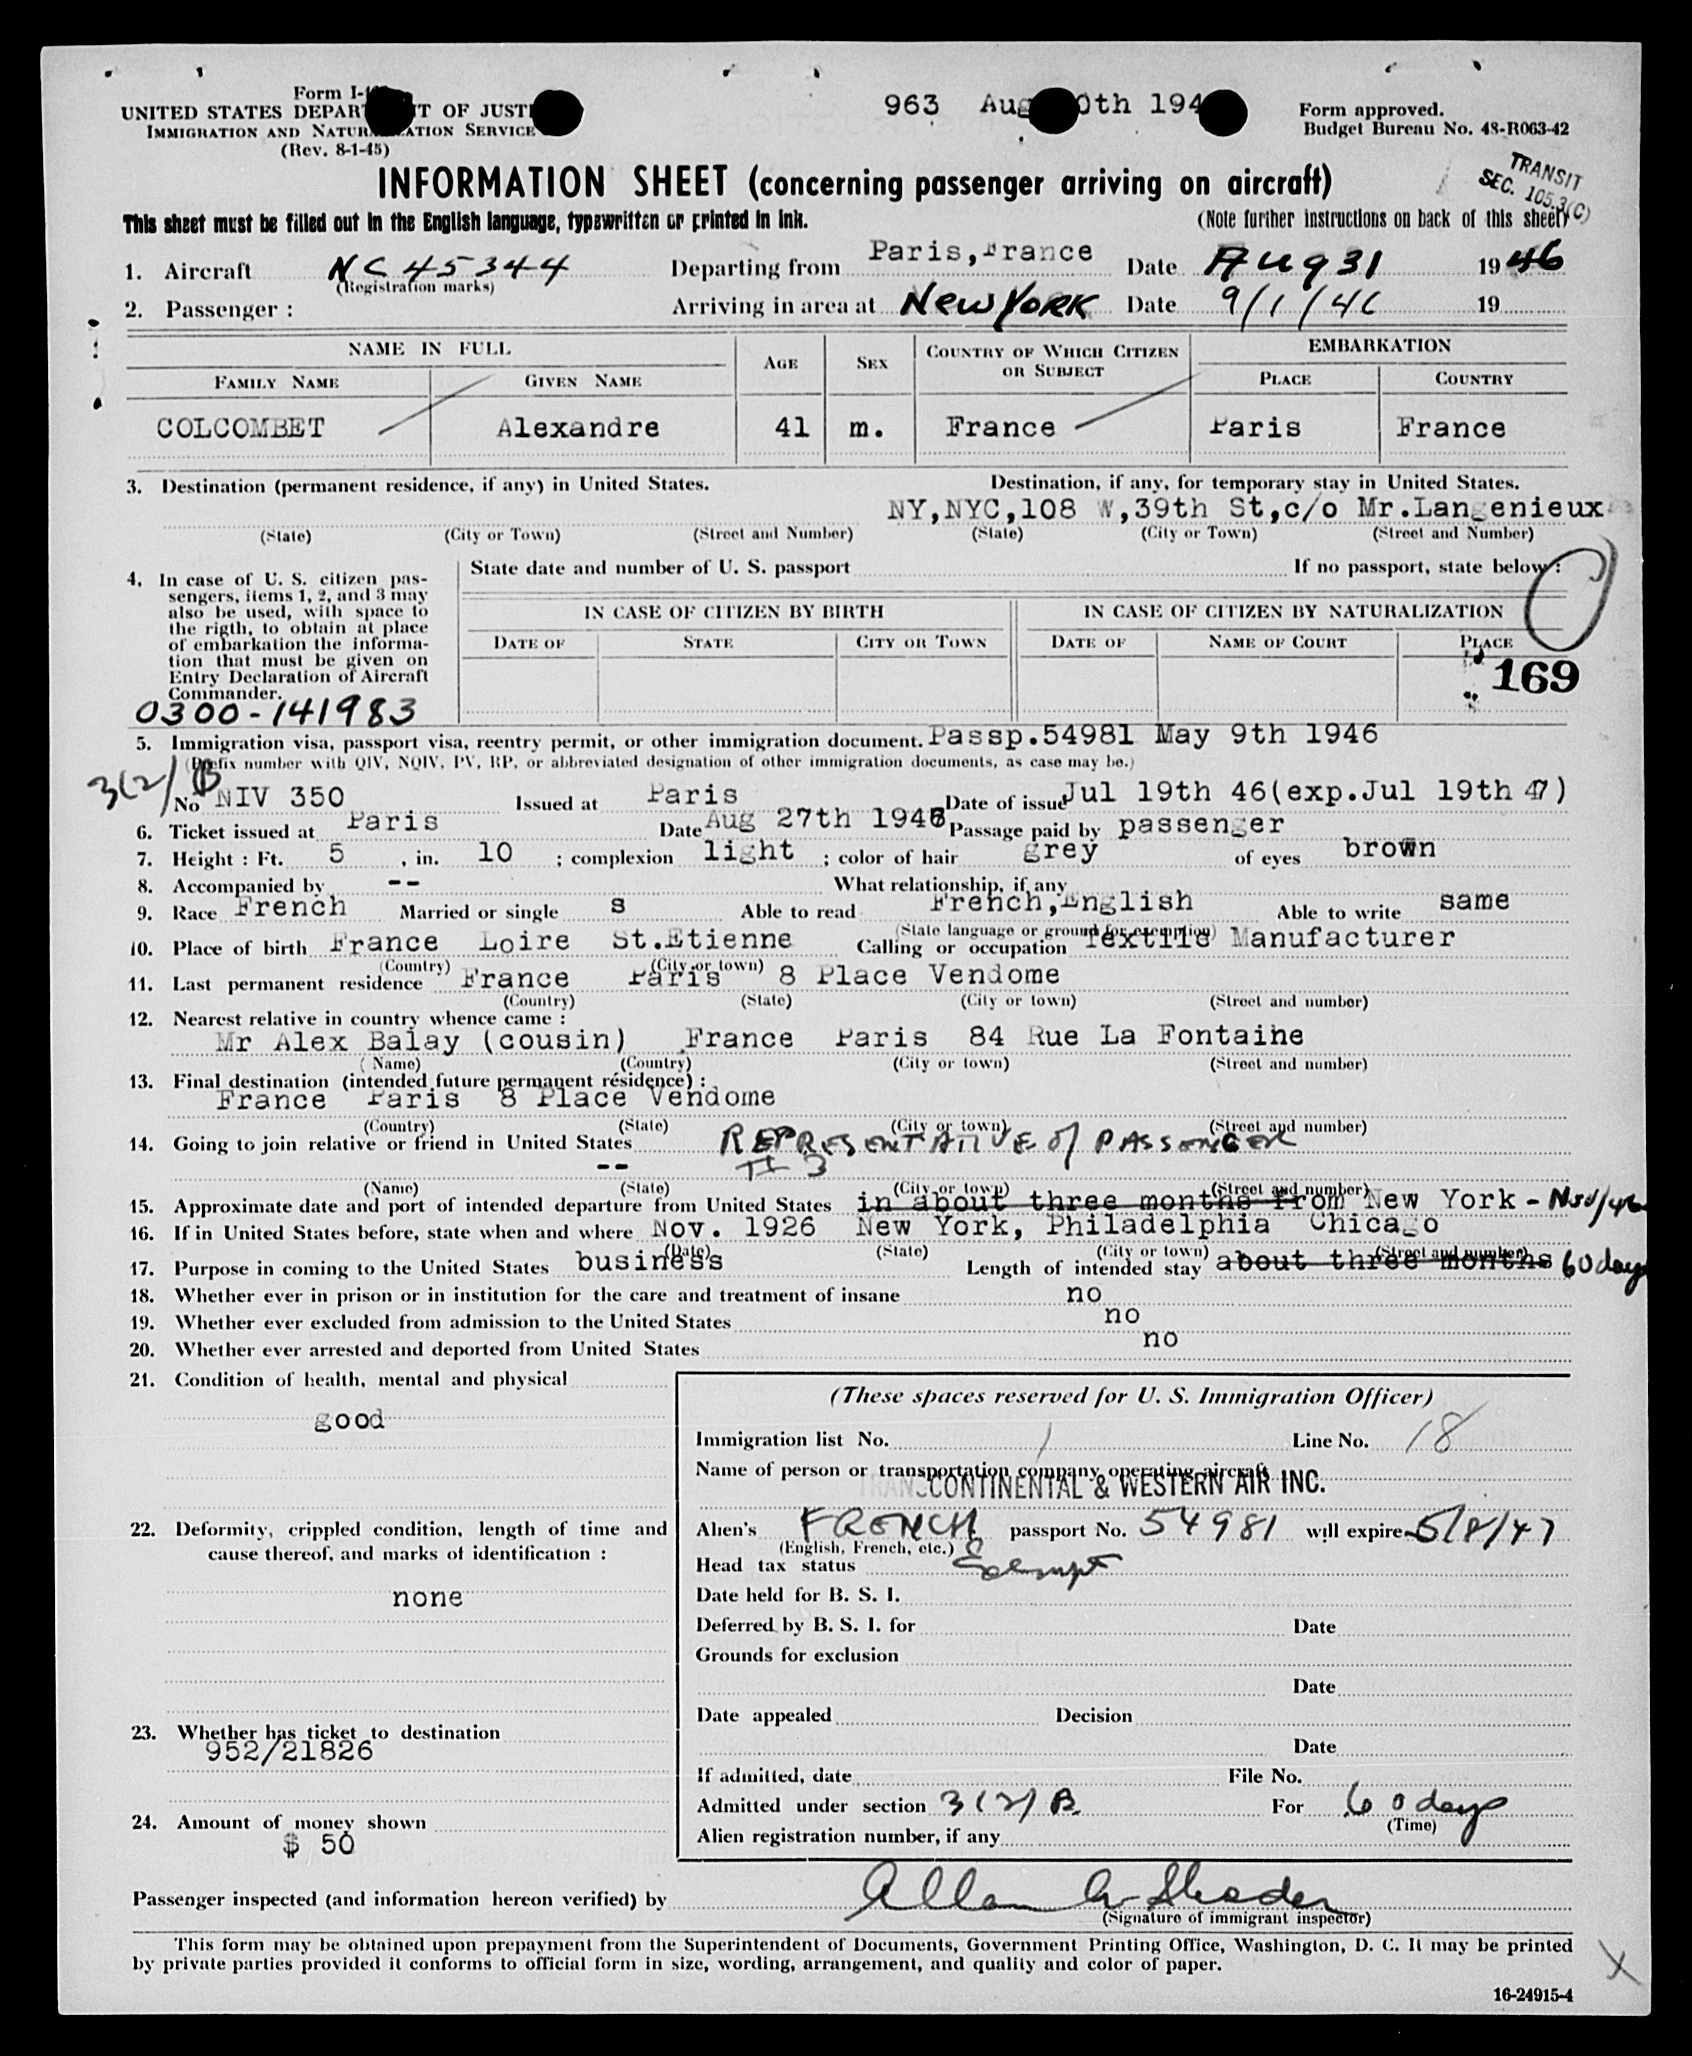 Form I-
963 Aug 0th 194
Form approved.
UNITED STATES DEPAR T OF JUSTI
Budget Bureau No. 43-R063-42
IMMIGRATION AND NATUR ATION SERVICE
(Rev. 8-1-45)
TRANSIT
SEC. 105.3(C)
INFORMATION SHEET (concerning passenger arriving on aircraft)
This sheet must be filled out in the English language, typewritten or printed in ink.
(Note further instructions on back of this sheet)
1. Aircraft NC 45344 Departing from Paris,France Date Aug 31 1946
(Registration marks)
2. Passenger : Arriving in area at New York Date 9/1/46 19
NAME IN FULL AGE SEX COUNTRY OF WHICH CITIZEN OR SUBJECT EMBARKATION
FAMILY NAME GIVEN NAME PLACE COUNTRY
COLCOMBET Alexandre 41 m. France Paris France
3. Destination (permanent residence, if any) in United States. Destination, if any, for temporary stay in United States.
NY,NYC,108 W,39th St,c/o Mr.Langenieux
(State) (City or Town) (Street and Number) (State) (City or Town) (Street and Number)
4. In case of U. S. citizen pas-
sengers, items 1, 2, and 3 may
also be used, with space to
the rigth, to obtain at place
of embarkation the informa-
tion that must be given on
Entry Declaration of Aircraft
Commander.
State date and number of U. S. passport If no passport, state below :
IN CASE OF CITIZEN BY BIRTH IN CASE OF CITIZEN BY NATURALIZATION
DATE OF STATE CITY OR TOWN DATE OF NAME OF COURT PLACE
169
0300-141983
5. Immigration visa, passport visa, reentry permit, or other immigration document. Passp.54981 May 9th 1946
(Prefix number with QIV, NQIV, PV, RP, or abbreviated designation of other immigration documents, as case may be.)
3(2)B
No NIV 350 Issued at Paris Date of issue Jul 19th 46(exp.Jul 19th 47)
6. Ticket issued at Paris Date Aug 27th 1946 Passage paid by passenger
7. Height : Ft. 5 , in. 10 ; complexion light ; color of hair grey of eyes brown
8. Accompanied by -- What relationship, if any
9. Race French Married or single s Able to read French,English Able to write same
(State language or ground for exemption)
10. Place of birth France Loire St.Etienne Calling or occupation Textile Manufacturer
(Country) (City or town)
11. Last permanent residence France Paris 8 Place Vendome
(Country) (State) (City or town) (Street and number)
12. Nearest relative in country whence came :
Mr Alex Balay (cousin) France Paris 84 Rue La Fontaine
(Name) (Country) (City or town) (Street and number)
13. Final destination (intended future permanent résidence) :
France Paris 8 Place Vendome
(Country) (State) (City or town) (Street and number)
14. Going to join relative or friend in United States REPRESENTATIVE of PASSENGER
-- 3
(Name) (State) (City or town) (Street and number)
15. Approximate date and port of intended departure from United States in about three months from New York - Nov/46
16. If in United States before, state when and where Nov. 1926 New York, Philadelphia Chicago
(Date) (State) (City or town) (Street and number)
17. Purpose in coming to the United States business Length of intended stay about three months 60 days
18. Whether ever in prison or in institution for the care and treatment of insane no
19. Whether ever excluded from admission to the United States no
20. Whether ever arrested and deported from United States no
21. Condition of health, mental and physical
good
22. Deformity, crippled condition, length of time and
cause thereof, and marks of identification :
none
23. Whether has ticket to destination
952/21826
24. Amount of money shown
$ 50
(These spaces reserved for U. S. Immigration Officer)
Immigration list No. 1 Line No. 18
Name of person or transportation company operating aircraft
TRANSCONTINENTAL & WESTERN AIR INC.
Alien's FRENCH passport No. 54981 will expire 5/8/47
(English, French, etc.)
Head tax status Exempt
Date held for B. S. I.
Deferred by B. S. I. for Date
Grounds for exclusion
Date
Date appealed Decision
Date
If admitted, date File No.
Admitted under section 3(2)B. For 60 days
(Time)
Alien registration number, if any
Passenger inspected (and information hereon verified) by Allan
(Signature of immigrant inspector)
This form may be obtained upon prepayment from the Superintendent of Documents, Government Printing Office, Washington, D. C. It may be printed
by private parties provided it conforms to official form in size, wording, arrangement, and quality and color of paper.
X
16-24915-4